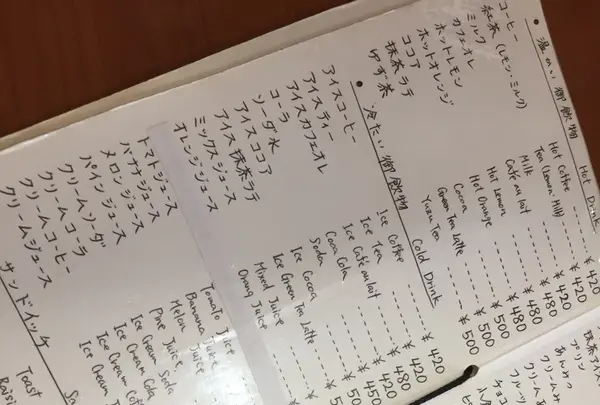 • 温かい御飲物 Hot Drink
コーヒー Hot Coffee ------ ¥420
紅茶 (レモン・ミルク) Tea (Lemon・Milk) ------ ¥420
ミルク Milk ------ ¥420
カフェオレ Café au lait ------ ¥480
ホットレモン Hot Lemon ------ ¥480
ホットオレンジ Hot Orange ------ ¥480
ココア Cocoa ------ ¥500
抹茶ラテ Green Tea Latte ------ ¥500
ゆず茶 Yuzu Tea ------ ¥500
• 冷たい御飲物 Cold Drink
アイスコーヒー Ice Coffee ------ ¥420
アイスティー Ice Tea ------ ¥420
アイスカフェオレ Ice Café au lait ------ ¥480
コーラ Coca Cola ------ ¥420
ソーダ水 Soda ------ ¥450
アイスココア Ice Cocoa ------ ¥50
アイス抹茶ラテ Ice Green Tea Latte ------
ミックスジュース Mixed Juice ------
オレンジジュース Orang Juice ------
トマトジュース Tomato Juice
バナナジュース Banana Juice
メロンジュース Melon Juice
パインジュース Pine Juice
クリームソーダ Ice Cream Soda
クリームコーラ Ice Cream Cola
クリームコーヒー Ice Cream Coff
クリームジュース Ice Cream
サンドイッチ Sa
Toast
Raisi
抹茶アイス
プリン
あんみつ
クリームあ